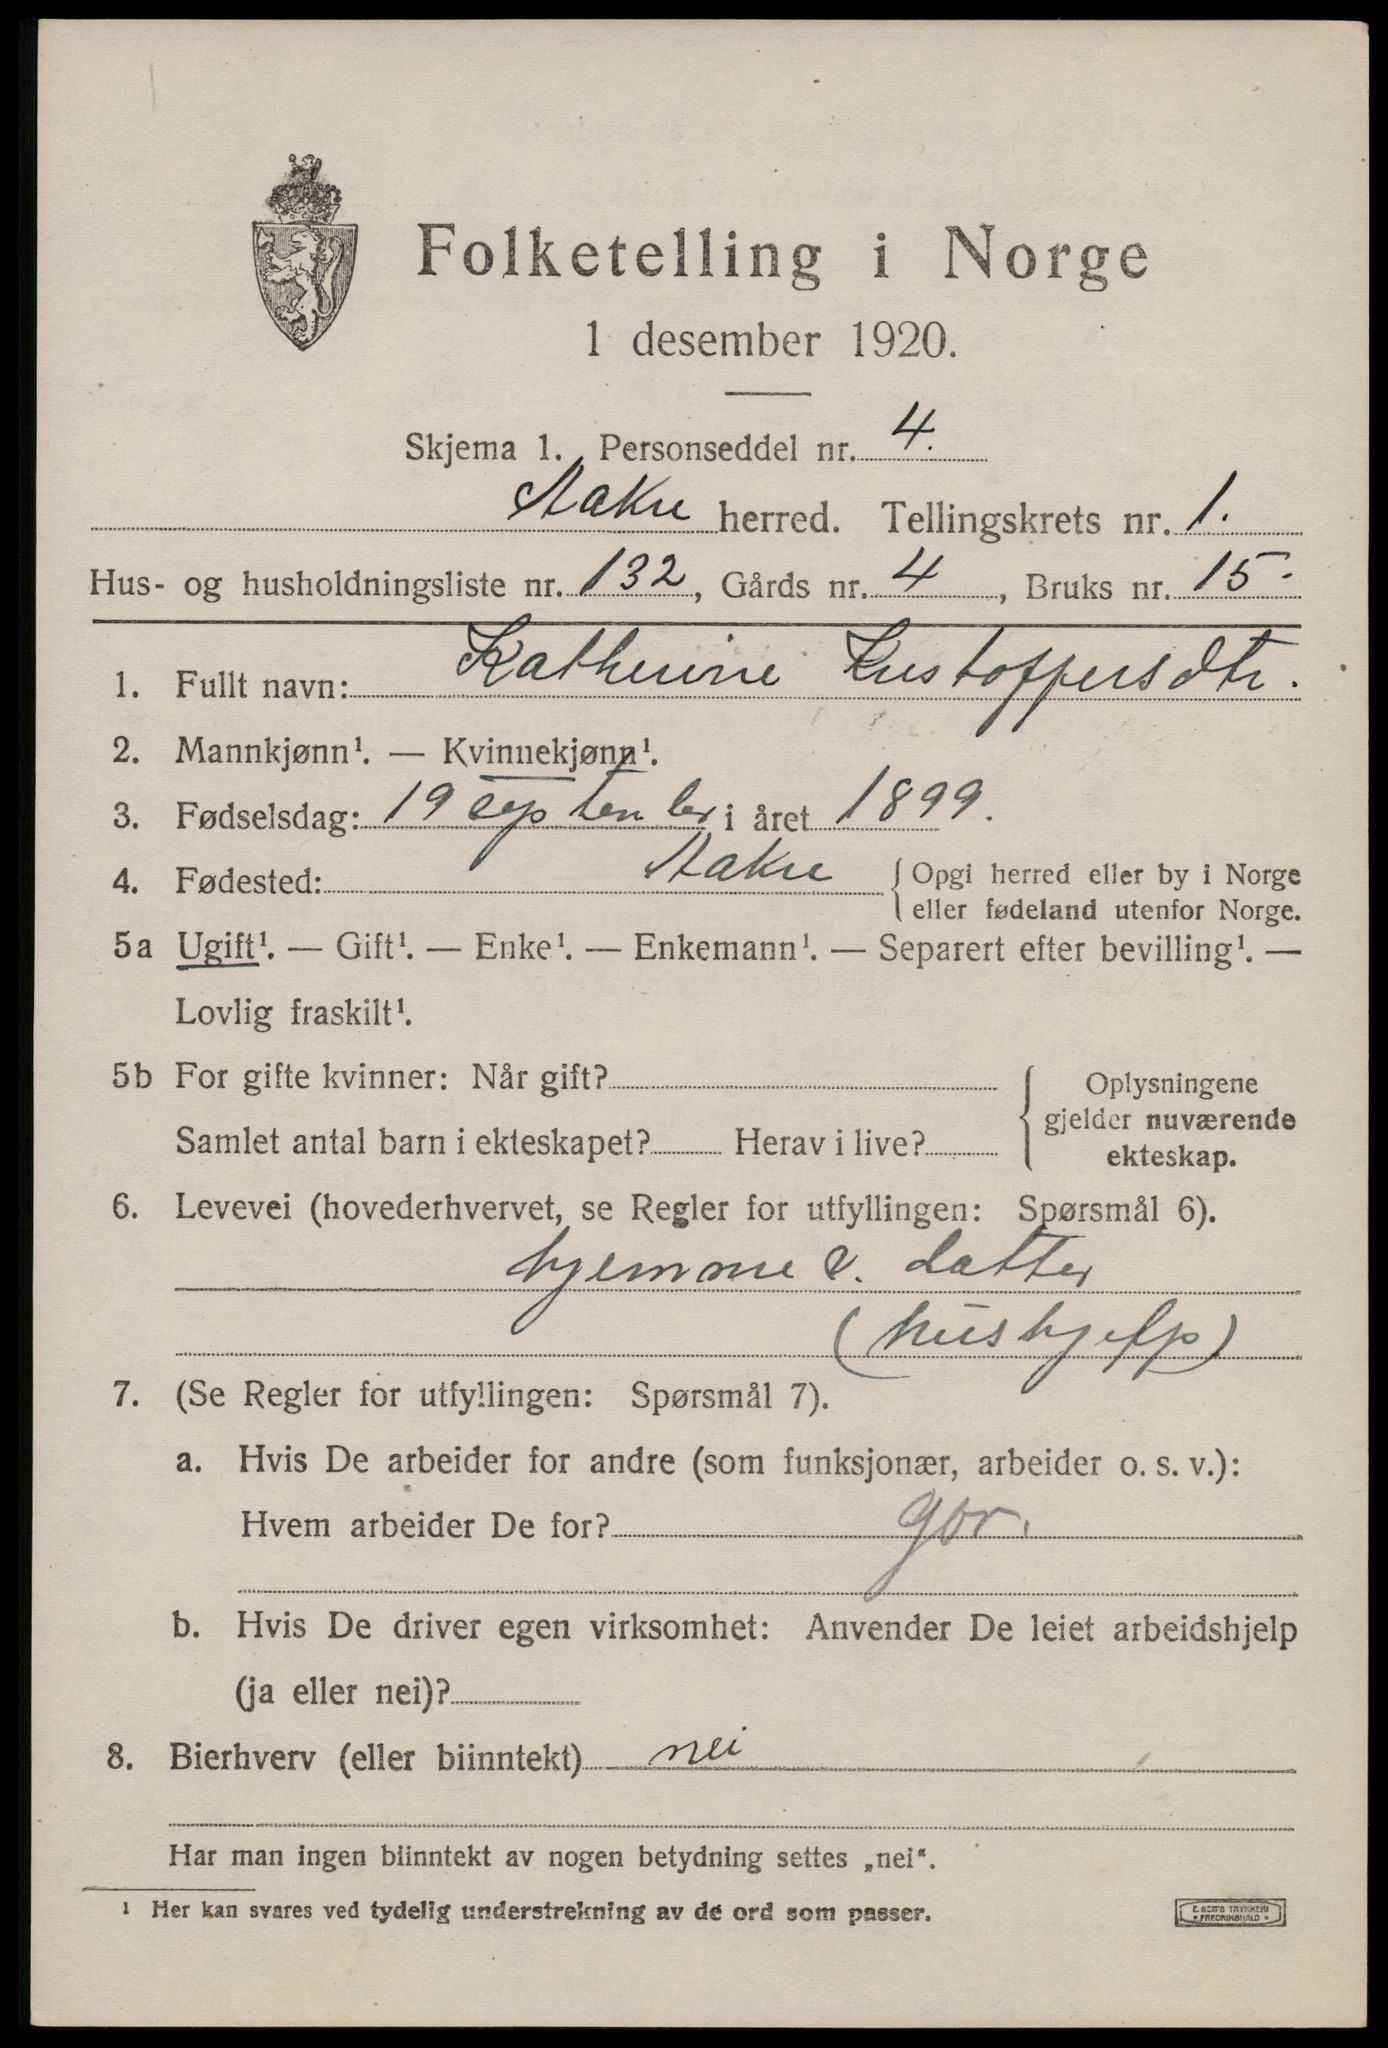 Folketelling i Norge
1 desember 1920.
Skjema 1. Personseddel nr. 4.
Aakre herred. Tellingskrets nr. 1.
Hus- og husholdningsliste nr. 132, Gårds nr. 4, Bruks nr. 15.
1. Fullt navn: Katherine Kristoffersdtr.
2. Mannkjønn¹. — Kvinnekjønn¹.
3. Fødselsdag: 19 september i året 1899.
4. Fødested: Aakre { Opgi herred eller by i Norge
eller fødeland utenfor Norge.
5a Ugift¹. — Gift¹. — Enke¹. — Enkemann¹. — Separert efter bevilling¹. —
Lovlig fraskilt¹.
5b For gifte kvinner: Når gift?
Samlet antal barn i ekteskapet? Herav i live?
{ Oplysningene
gjelder nuværende
ekteskap.
6. Levevei (hovederhvervet, se Regler for utfyllingen: Spørsmål 6).
hjemmev. datter
(hushjelp)
7. (Se Regler for utfyllingen: Spørsmål 7).
a. Hvis De arbeider for andre (som funksjonær, arbeider o. s. v.):
Hvem arbeider De for? gbr.
b. Hvis De driver egen virksomhet: Anvender De leiet arbeidshjelp
(ja eller nei)?
8. Bierhverv (eller biinntekt) nei
Har man ingen biinntekt av nogen betydning settes „nei“.
¹ Her kan svares ved tydelig understrekning av de ord som passer.
E. SEM'S TRYKKERI
• FREDRIKSHALD •